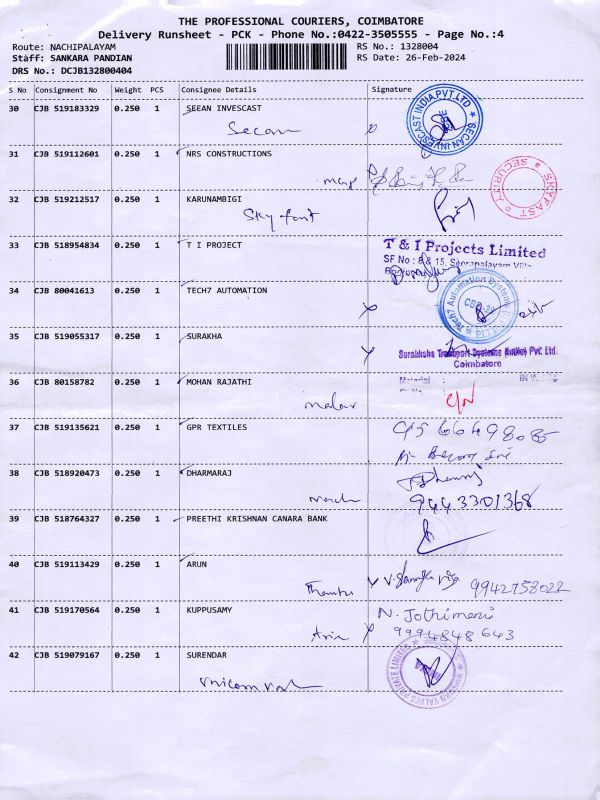 THE PROFESSIONAL COURIERS, COIMBATORE
Delivery Runsheet - PCK - Phone No.:0422-3505555 - Page No.:4
Route: NACHIPALAYAM RS No.: 1328004
Staff: SANKARA PANDIAN RS Date: 26-Feb-2024
DRS No.: DCJB132800404
S No Consignment No Weight PCS Consignee Details Signature
30 CJB 519183329 0.250 1 SEEAN INVESCAST
Secan
SECAN INVESCAST INDIA PVT LTD
31 CJB 519112601 0.250 1 NRS CONSTRUCTIONS
SKYFAST SECURITY
32 CJB 519212517 0.250 1 KARUNAMBIGI
Sky fast
33 CJB 518954834 0.250 1 T I PROJECT
T & I Projects Limited
SF No : 8 & 15, Seerapalayam
34 CJB 80041613 0.250 1 TECH7 AUTOMATION
Tech7 Automation Systems
CBE
35 CJB 519055317 0.250 1 SURAKHA
Suraksha Transport Systems (India) Pvt. Ltd.
Coimbatore
36 CJB 80158782 0.250 1 MOHAN RAJATHI
Material :
37 CJB 519135621 0.250 1 GPR TEXTILES
38 CJB 518920473 0.250 1 DHARMARAJ
Dharmaraj
9443301368
39 CJB 518764327 0.250 1 PREETHI KRISHNAN CANARA BANK
40 CJB 519113429 0.250 1 ARUN
9942758022
41 CJB 519170564 0.250 1 KUPPUSAMY
N. Jothimani
9994848643
42 CJB 519079167 0.250 1 SURENDAR
VALVES PRIVATE LIMITED